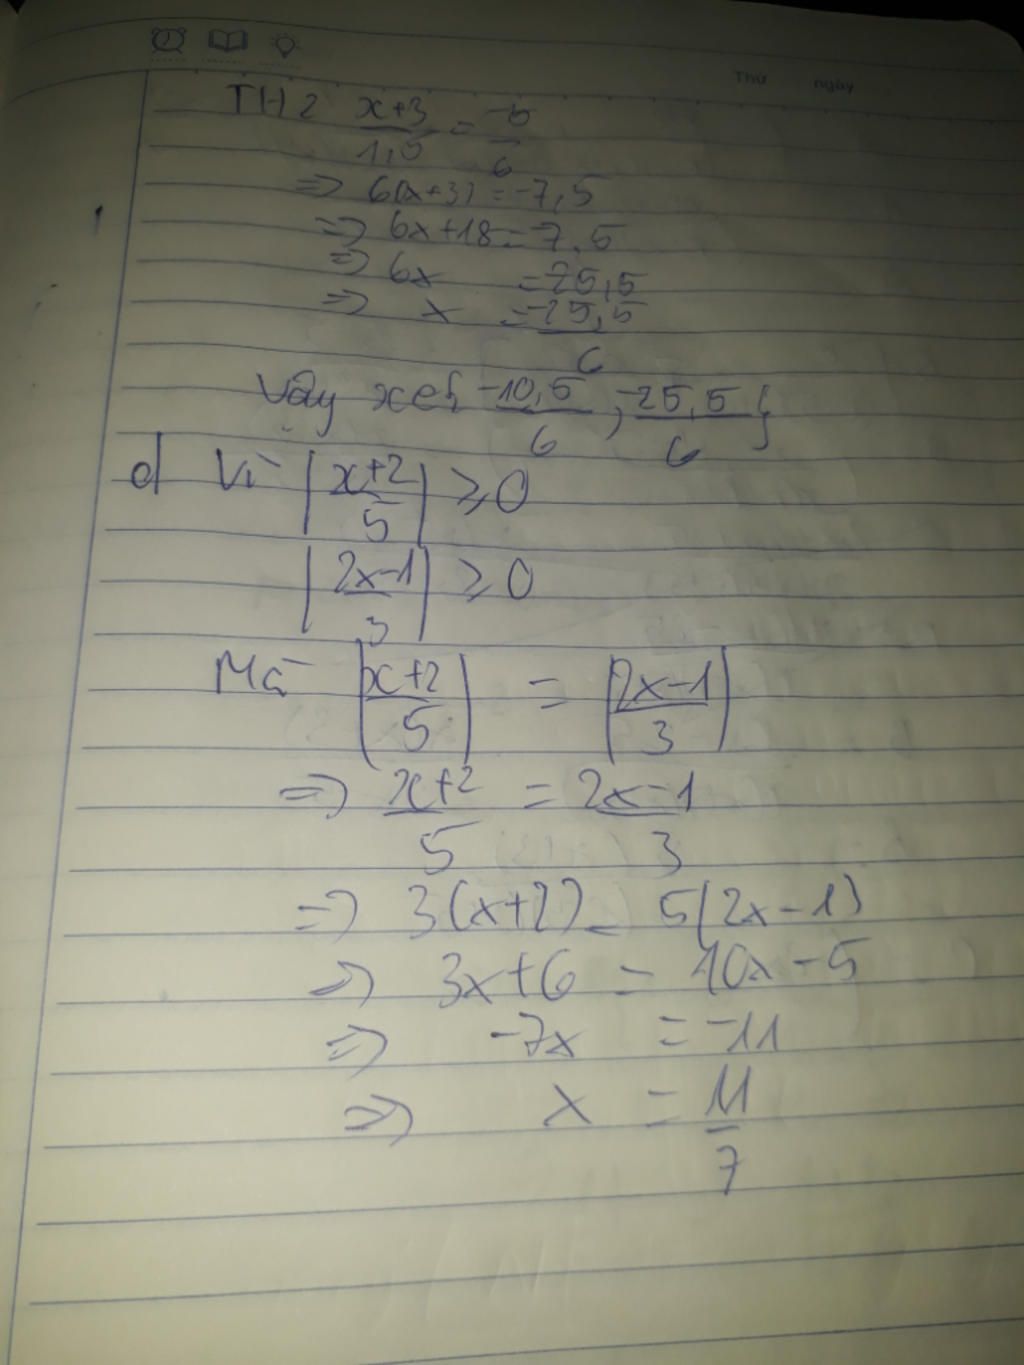 Thứ ngày
TH2 x+3/1,5 = -5/6
=> 6(x+3) = -7,5
=> 6x+18 = -7,5
=> 6x = -25,5
=> x = -25,5/6
Vậy x∈{ -10,5/6 , -25,5/6 }
d Vì |x+2/5| ⩾ 0
|2x-1/3| ⩾ 0
Mà |x+2/5| = |2x-1/3|
=> x+2/5 = 2x-1/3
=> 3(x+2) = 5(2x-1)
=> 3x+6 = 10x-5
=> -7x = -11
=> x = 11/7